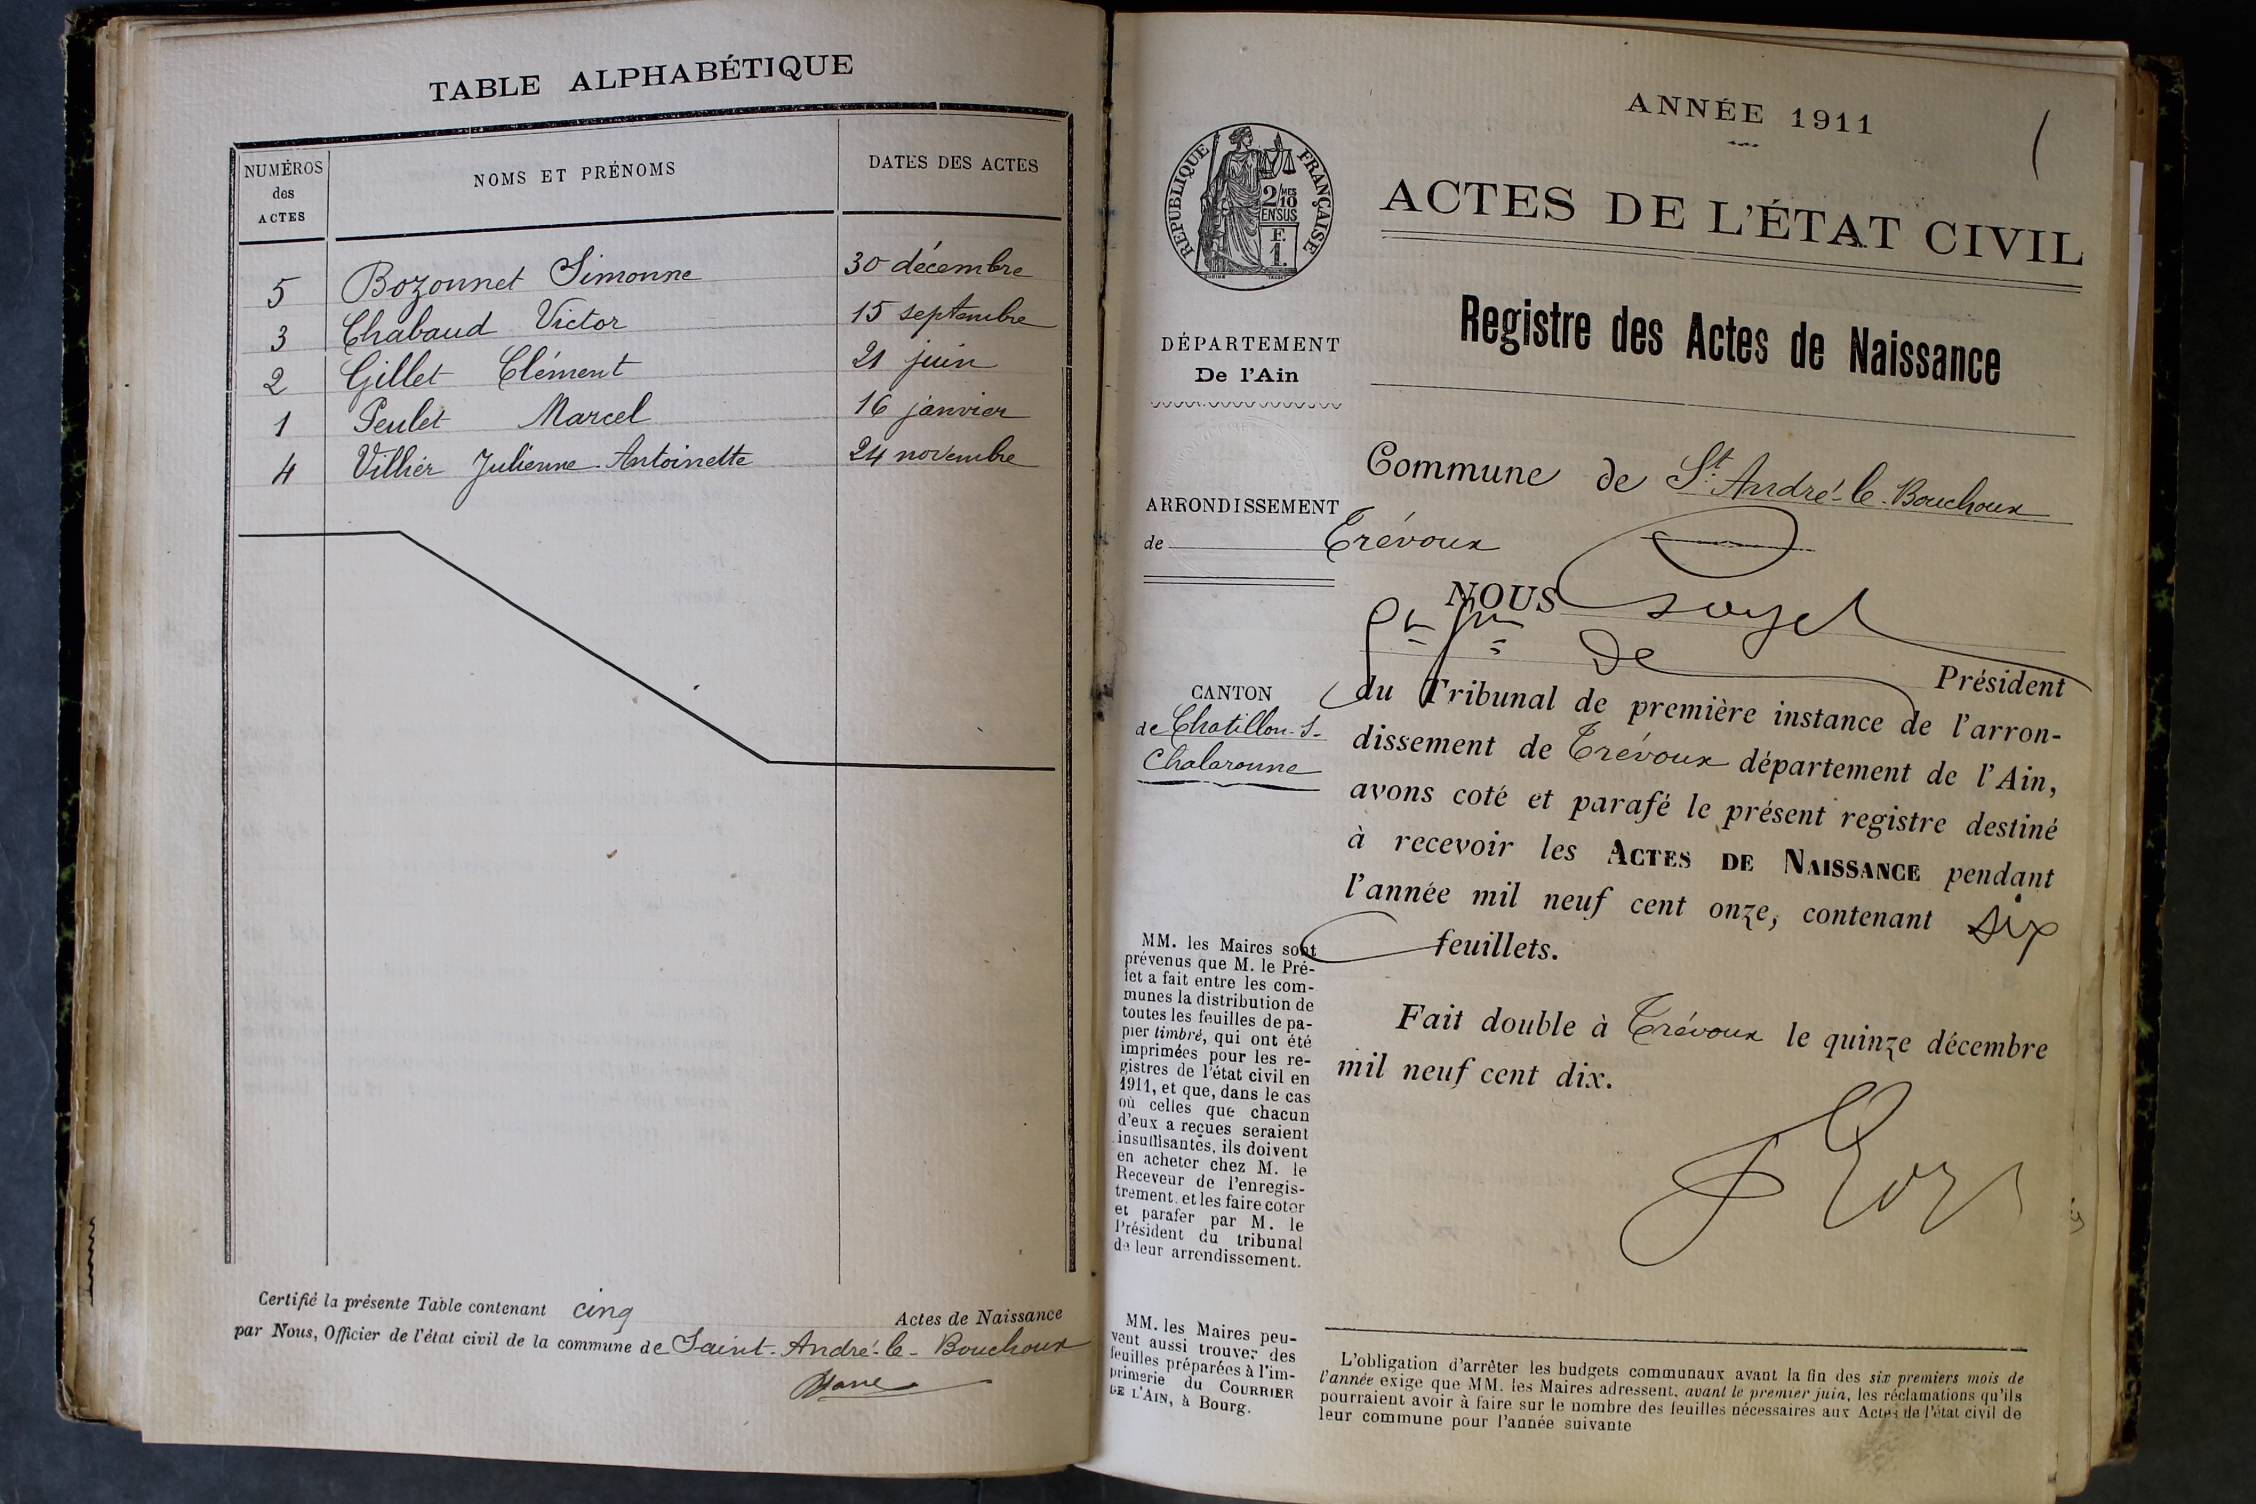 TABLE ALPHABÉTIQUE
NUMÉROS des ACTES
NOMS ET PRÉNOMS
DATES DES ACTES
5 Bozonnet Simonne 30 décembre
3 Chabaud Victor 15 septembre
2 Gillet Clément 21 juin
1 Peulet Marcel 16 janvier
4 Villier Julienne-Antoinette 24 novembre
Certifié la présente Table contenant cinq Actes de Naissance
par Nous, Officier de l'état civil de la commune de Saint-André-le-Bouchoux
ANNÉE 1911
ACTES DE L'ÉTAT CIVIL
RÉPUBLIQUE FRANÇAISE
2/10 MES
EN SUS
F.
1.
DÉPARTEMENT
De l'Ain
ARRONDISSEMENT
de Trévoux
CANTON
de Chatillon-s-
Chalaronne
MM. les Maires sont
prévenus que M. le Pré-
fet a fait entre les com-
munes la distribution de
toutes les feuilles de pa-
pier timbré, qui ont été
imprimées pour les re-
gistres de l'état civil en
1911, et que, dans le cas
où celles que chacun
d'eux a reçues seraient
insuffisantes, ils doivent
en acheter chez M. le
Receveur de l'enregis-
trement, et les faire coter
et parafer par M. le
Président du tribunal
de leur arrondissement.
MM. les Maires peu-
vent aussi trouver des
feuilles préparées à l'im-
primerie du COURRIER
DE L'AIN, à Bourg.
Registre des Actes de Naissance
Commune de St. André-le-Bouchoux
NOUS
de
Président
du Tribunal de première instance de l'arron-
dissement de Trévoux département de l'Ain,
avons coté et parafé le présent registre destiné
à recevoir les ACTES DE NAISSANCE pendant
l'année mil neuf cent onze, contenant six
feuillets.
Fait double à Trévoux le quinze décembre
mil neuf cent dix.
L'obligation d'arrêter les budgets communaux avant la fin des six premiers mois de
l'année exige que MM. les Maires adressent, avant le premier juin, les réclamations qu'ils
pourraient avoir à faire sur le nombre des feuilles nécessaires aux Actes de l'état civil de
leur commune pour l'année suivante